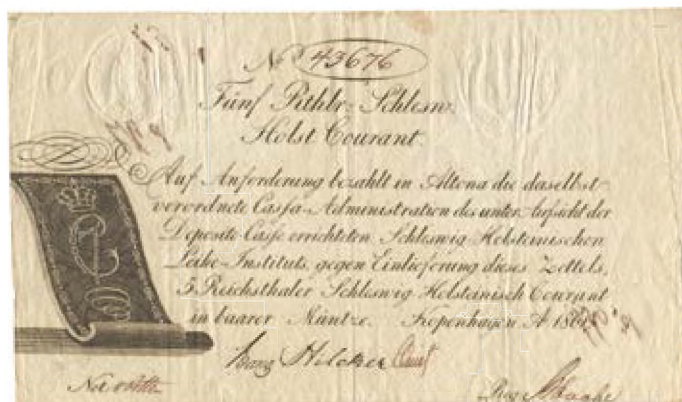 No 43676
Fünf Rthlr. Schlesw.
Holst Courant.
Auf Anforderung bezahlt in Altona die daselbst
verordnete Cassa-Administration des unter Aufsicht der
Deposito-Casse errichteten Schleswig Holsteinischen
Leihe-Instituts, gegen Einlieferung dieses Zettels,
5 Reichsthaler Schleswig Holsteinisch Courant
in baarer Müntze. Kopenhagen Ao